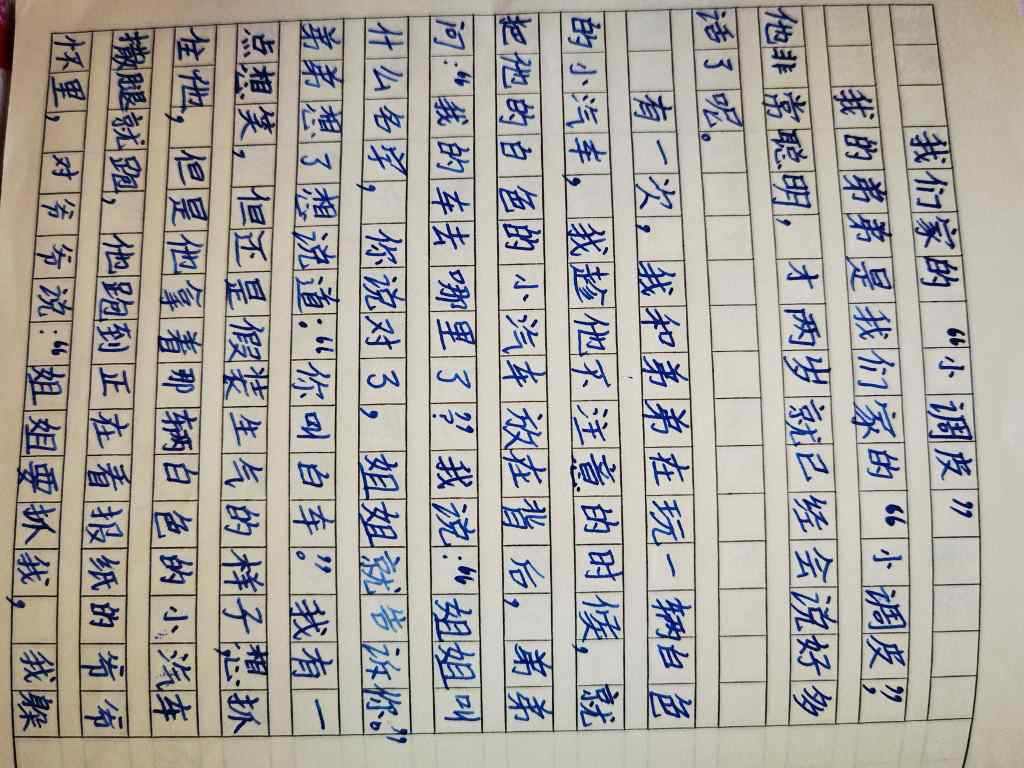 我们家的“小调皮”
我的弟弟是我们家的“小调皮”，
他非常聪明，才两岁就已经会说好多
话了呢。
有一次，我和弟弟在玩一辆白色
的小汽车，我趁他不注意的时候，就
把他的白色的小汽车放在背后，弟弟
问：“我的车去哪里了？”我说：“姐姐叫
什么名字，你说对了，姐姐就告诉你。”
弟弟想了想说道：“你叫白车。”我有一
点想笑，但还是假装生气的样子想抓
住他，但是他拿着那辆白色的小汽车
撒腿就跑，他跑到正在看报纸的爷爷
怀里，对爷爷说：“姐姐要抓我，我躲